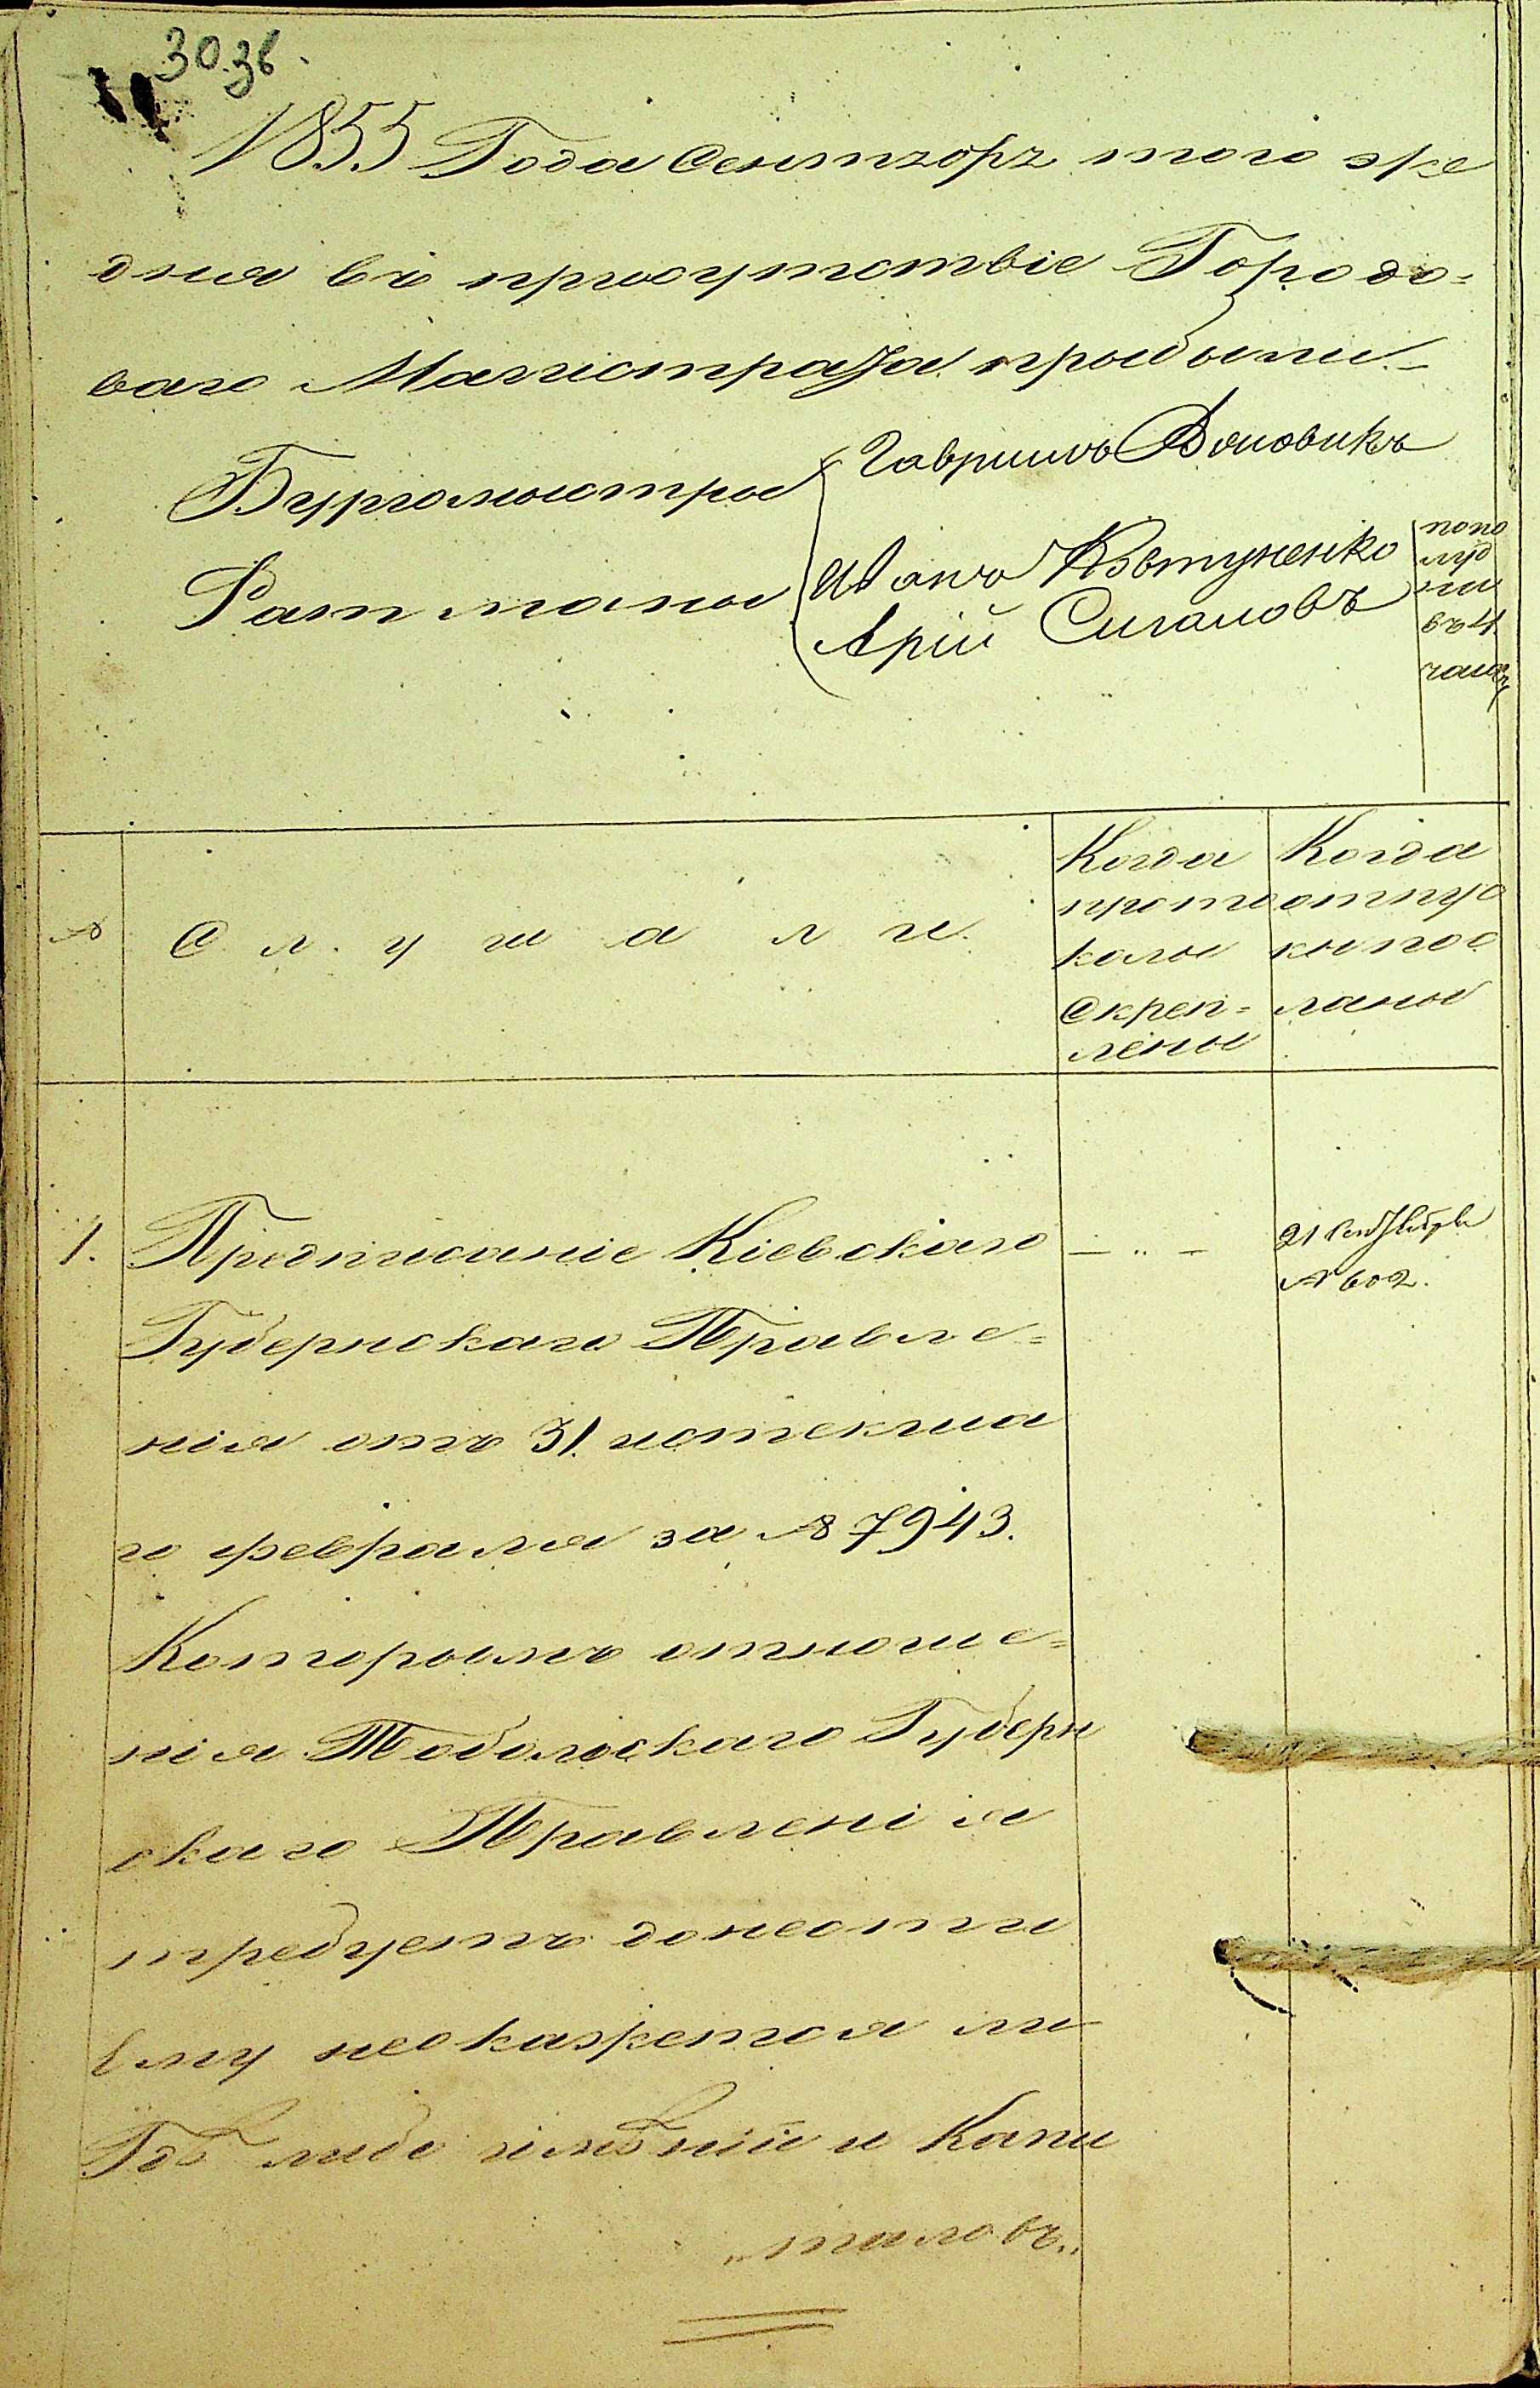 30. зв.
1855 Года Сентября того же
дня въ присутствіе Городо=
ваго Магистрата прибыли.
Бургомистры
Гаврииль
Ратманы
Иванъ Ковтуненко
Арій Сигаловъ
попо
луд
ни
въ 4
часа
№
Слушали.
Когда
прото
колы
скреп=
лены
Когда
отпус
ки пос
ланы
1.
Предписаніе Кіевскаго
Губернскаго Правле=
нія отъ 31. истекша
го февраля за № 7943.
Которымъ отноше=
нія Тобольскаго Губерн
скаго Правленія
требуетъ донести
ему неокажется ли
Где либо имѣній и Капи
„талов„
— „ —
21 Сентября
№ 602.